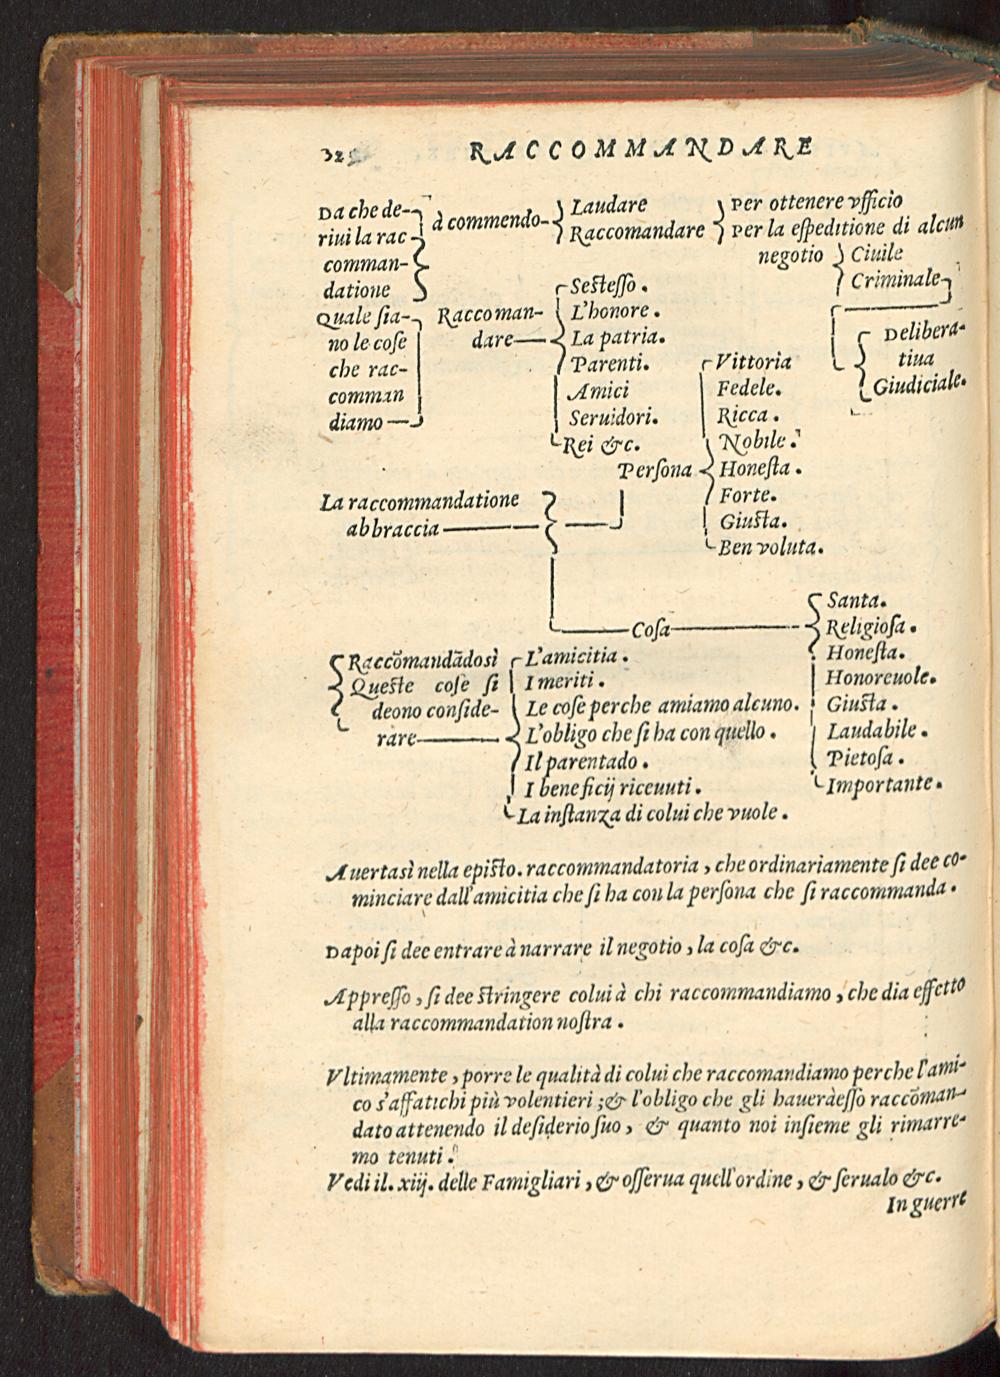 RACCOMMANDARE
Da che de-
riui la rac
comman-
datione
à commendo-
Laudare
Raccomandare
Per ottenere vfficio
Per la espeditione di alcun
negotio
Ciuile
Criminale
Delibera-
tiua
Giudiciale.
Quale sia-
no le cose
che rac-
comman
diamo
Raccoman-
dare
Sestesso.
L'honore.
La patria.
Parenti.
Amici
Seruidori.
Rei &c.
La raccommandatione
abbraccia
Persona
Vittoria
Fedele.
Ricca.
Nobile.
Honesta.
Forte.
Giusta.
Ben voluta.
Cosa
Santa.
Religiosa.
Honesta.
Honoreuole.
Giusta.
Laudabile.
Pietosa.
Importante.
Raccõmandãdosi
Queste cose si
deono conside-
rare
L'amicitia.
I meriti.
Le cose perche amiamo alcuno.
L'obligo che si ha con quello.
Il parentado.
I beneficij riceuuti.
La instanza di colui che vuole.
Auertasi nella episto. raccommandatoria, che ordinariamente si dee co-
minciare dall'amicitia che si ha con la persona che si raccommanda.
Dapoi si dee entrare à narrare il negotio, la cosa &c.
Appresso, si dee stringere colui à chi raccommandiamo, che dia effetto
alla raccommandation nostra.
Vltimamente, porre le qualità di colui che raccomandiamo perche l'ami-
co s'affatichi più volentieri; & l'obligo che gli hauerà esso raccõman-
dato attenendo il desiderio suo, & quanto noi insieme gli rimarre-
mo tenuti.
Vedi il. xiij. delle Famigliari, & osserua quell'ordine, & serualo &c.
In guerre